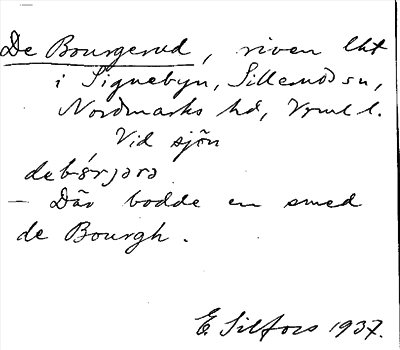 De Bourgerud, riven lht
i Signebyn, Sillerud sn,
Nordmarks hd, Vrml l.
Vid sjön
– Där bodde en smed
de Bourgh.
E. Silfors 1937.